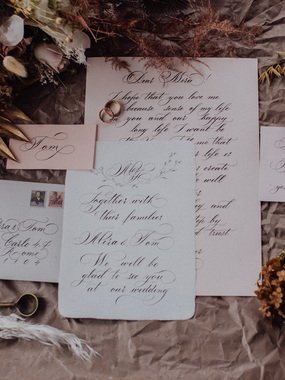 Dear Mira!
I hope that you love me
because sense of my life
you and our happy
long life I want be
me that
life is
create
well
and
up by
trust
Tom
Together with
their families
Mira & Tom
We will be
glad to see you
at our wedding
Tom
Carlo 47
Rome